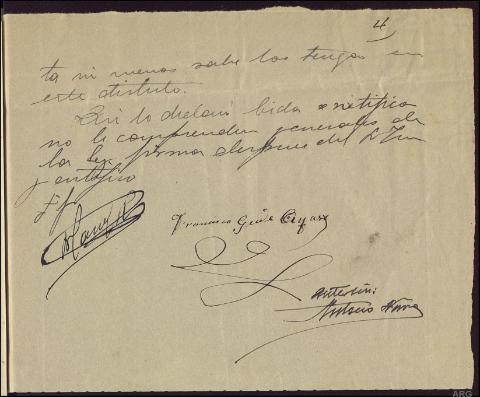 4
ta ni menos sabe los tenga en
este distrito.
Asi lo declaró leida ratifica
no le comprenden generales de
la ley firma despues del Sr Juez
y certifico
Francisco Gui
Antemi:
Antonio
ARG